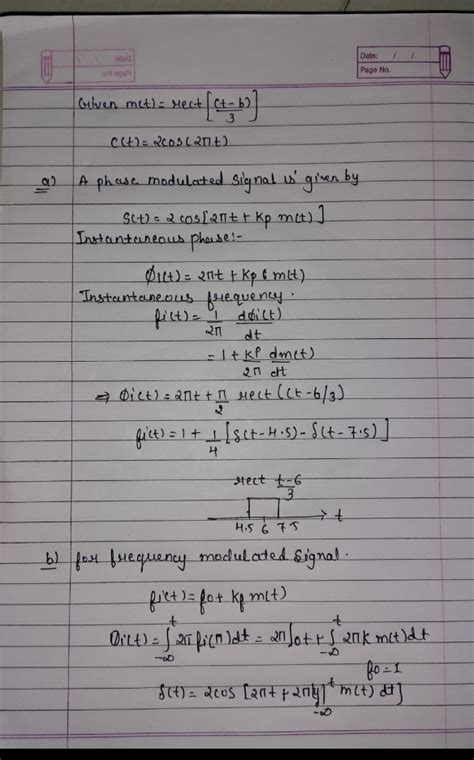 Date: / /
Page No.
Given m(t) = rect [(t-b)/3]
C(t) = 2cos(2πt)
a) A phase modulated signal is given by
S(t) = 2cos[2πt + Kp m(t)]
Instantaneous phase:-
Φi(t) = 2πt + Kp m(t)
Instantaneous frequency.
fi(t) = 1/2π dΦi(t)/dt
= 1 + Kp/2π dm(t)/dt
⇒ Φi(t) = 2πt + π/2 rect((t-6/3)
fi(t) = 1 + 1/4 [δ(t-4.5) - δ(t-7.5)]
rect t-6/3
4.5 6 7.5 t
b) for frequency modulated signal.
fi(t) = fo + Kf m(t)
Φi(t) = ∫_{-∞}^{t} 2π fi(π)dt = 2πfot + ∫_{-∞}^{t} 2πK m(t)dt
fo = 1
S(t) = 2cos [2πt + 2πkf ∫_{-∞}^{t} m(t) dt]